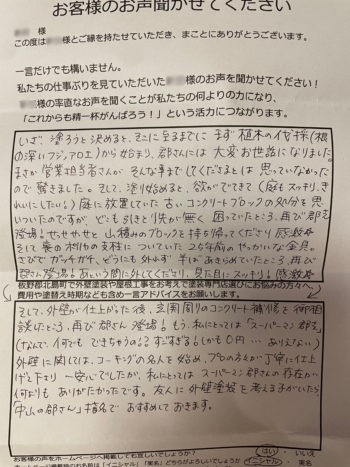 お客様のお声聞かせてください
様
この度は 様とご縁を持たせていただき、まことにありがとうございます。
一言だけでも構いません。
私たちの仕事ぶりを見ていただいた 様のお声を聞かせてください！
様の率直なお声を聞くことが私たちの何よりの力になり、
「これからも精一杯がんばろう！」という活力につながります。
いざ、塗ろうと決めると、そこに至るまでに まず 植木の伐採(根
の深いフジ、アロエ)から始まり、郡さんには 大変お世話になりました。
まさか営業担当者さんが そんな事までしてくださるとは 思っていなかった
ので驚きました。そして、塗り始めると、欲がでてきて(庭もスッキリ、き
れいにしたい。)庭に置いていた古いコンクリートブロックの処分を思
いついたのですが、どこも引きとり先が無く 困っていたところ、再び郡さん
登場！せっせせっせと 山積みのブロックを持ち帰ってくださり 感激☆
そして 裏の の支柱についていた26年前のやっかいな金具。
さびで ガッチガチ、どうにも外れず 半ばあきらめていたところ、再び
郡さん登場！あという間に外してくださり、見た目にスッキリ！感激☆
板野郡北島町で外壁塗装や屋根工事をお考えで塗装専門店選びにお悩みの方々へ
費用や塗替え時期なども含め一言アドバイスをお願いします。
そして、外壁が仕上がった後、玄関周りのコンクリート補修を御相
談したところ、再び郡さん 登場！もう、私にとっては「スーパーマン郡さん」
(なんで、何でも できちゃうの？すごすぎる しかも0円… ありえない)
外壁に関しては、コーキングの名人を始め、プロの方々が丁寧に仕上
げて下さり 一安心でしたが、私にとっては スーパーマン郡さんの存在が
何よりも ありがたかったです。友人に外壁塗装を考える子がいたら、
「中山の郡さん」指名で おすすめしておきます。
お客様の声をホームページへ掲載しても宜しいでしょうか？ はい ・ いいえ
イニシャル ・ 実名